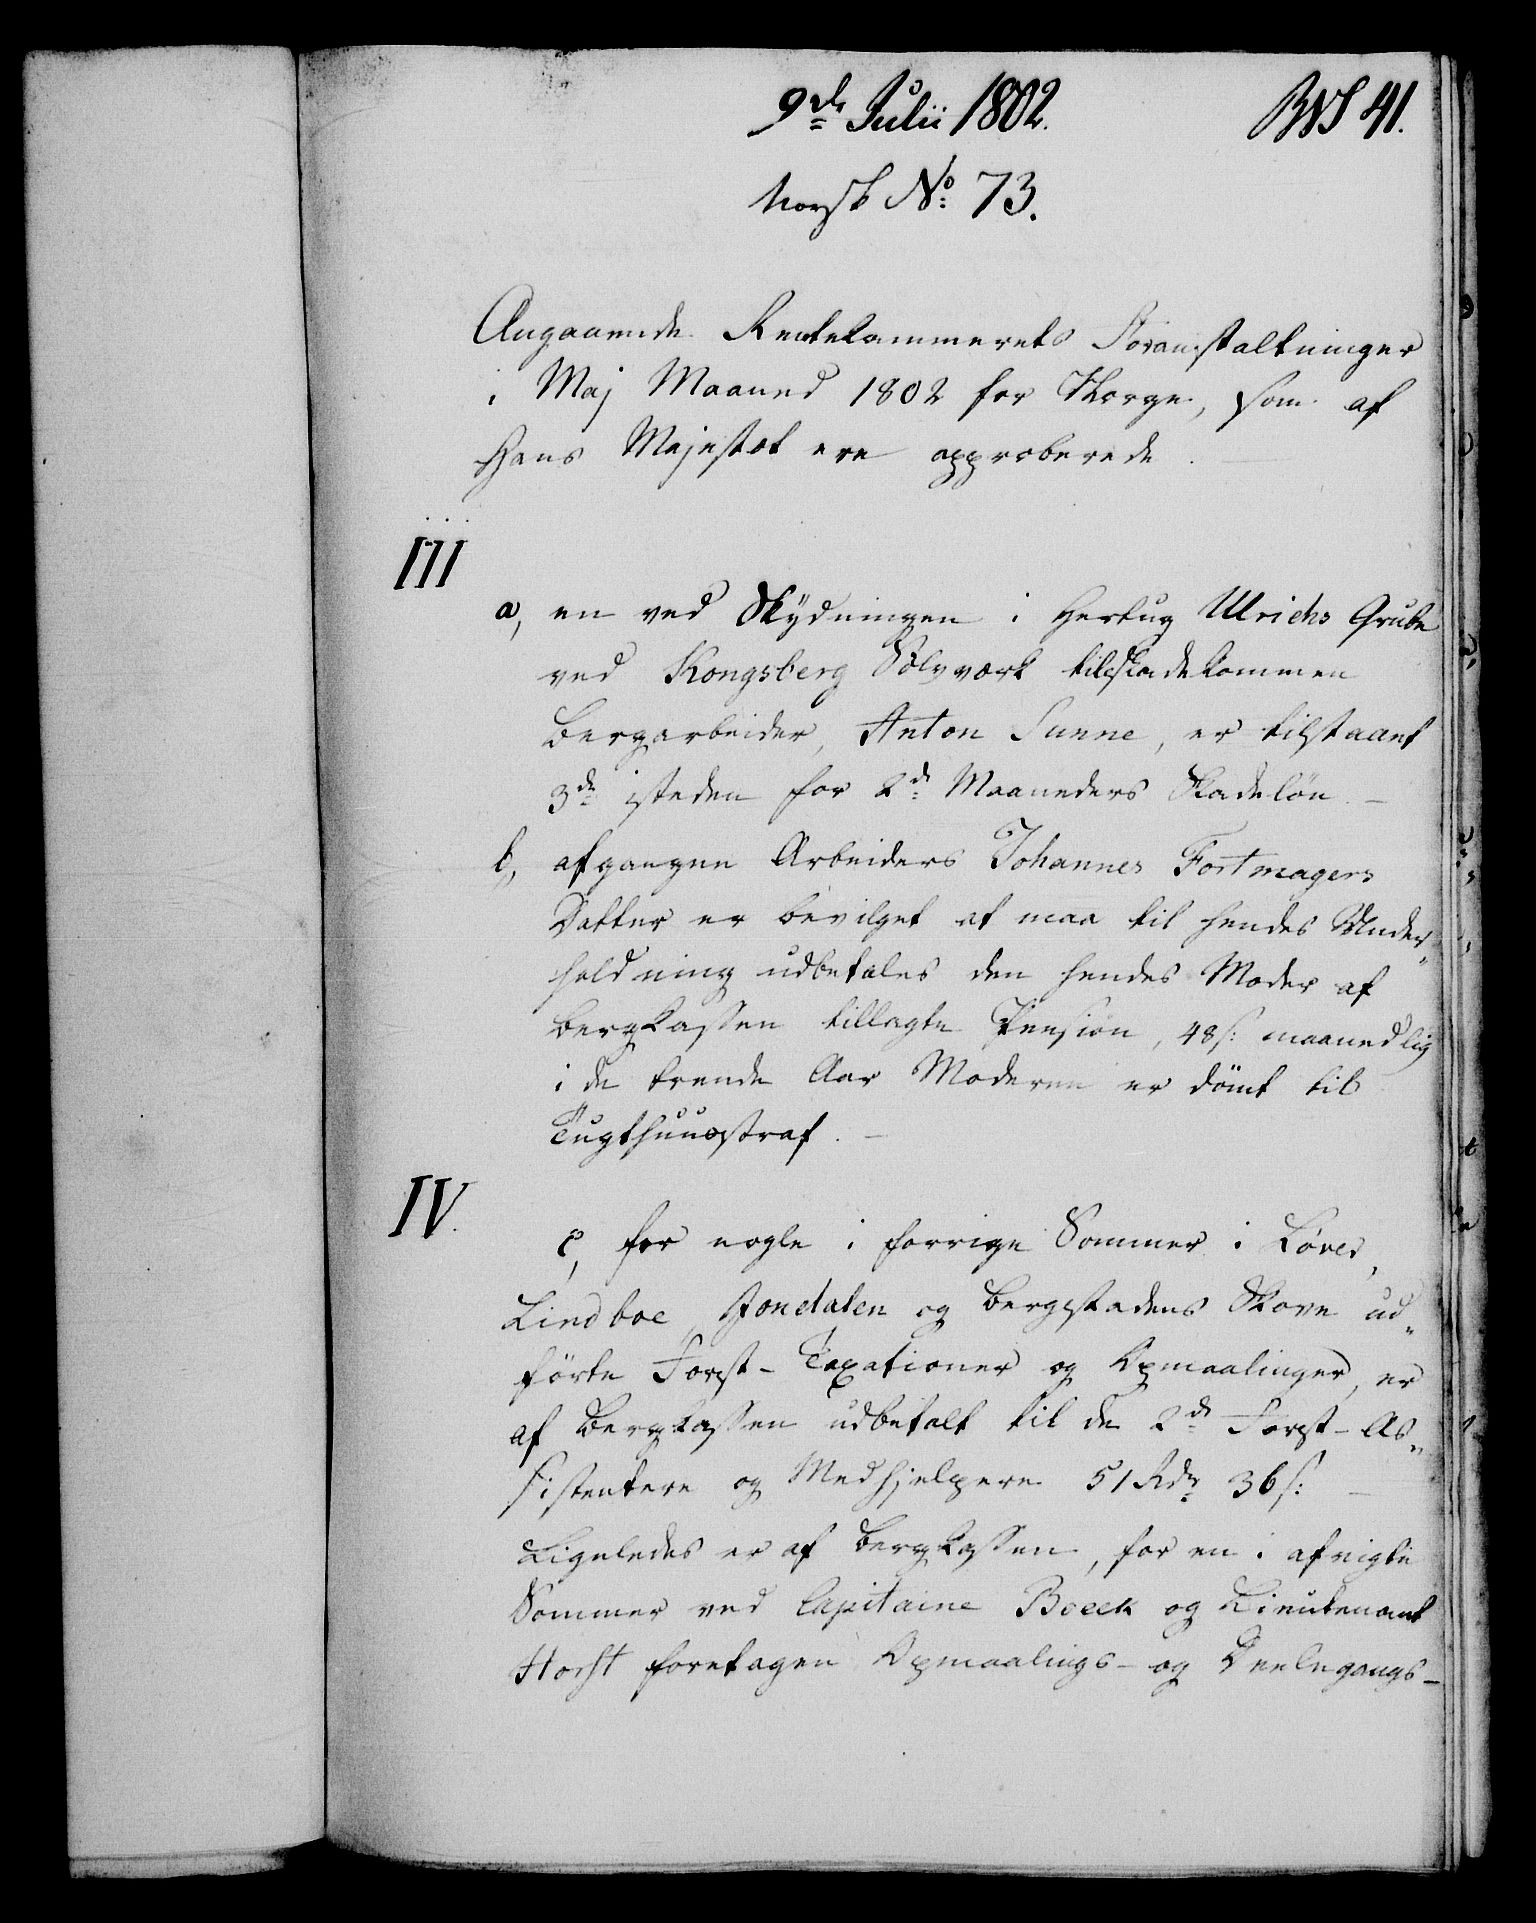 9de Julii 1802.
BWS 41.
Norsk No 73.
Angaaende Rentekammerets Foranstaltninger
i Maj Maaned 1802 for Norge, som af
Hans Majestæt ere approberede.
III
a, en ved Skydningen i Hertug Ulrichs Grube
ved Kongsberg Sölvværk tilskadekommen
Bergarbeider, Anton Sunne, er tilstaaet
3de isteden for 2de Maaneders Skadelön. -
b, afgangen Arbeiders Johannes Fortmagers
Datter er bevilget at maa til hendes Under„
holdning udbetales den hendes Moder af
Bergkassen tillagte Pension, 48 s: maanedlig
i de trende Aar Moderen er dömt til
Tugthuusstraf. -
IV.
c, for nogle i forrige Sommer i
Lindboe, Jondalen og Bergstadens Skove ud„
förte Forst-Taxationer og Opmaalinger, er
af Bergkassen udbetalt til de 2de Forst-As„
sistentere og Medhjelpere 51 Rdr 36 s: -
Ligeledes er af Bergkassen, for en i afvigte
Sommer ved Capitaine Boeck og Lieutenant
foretagen Opmaalings- og Deelegangs-